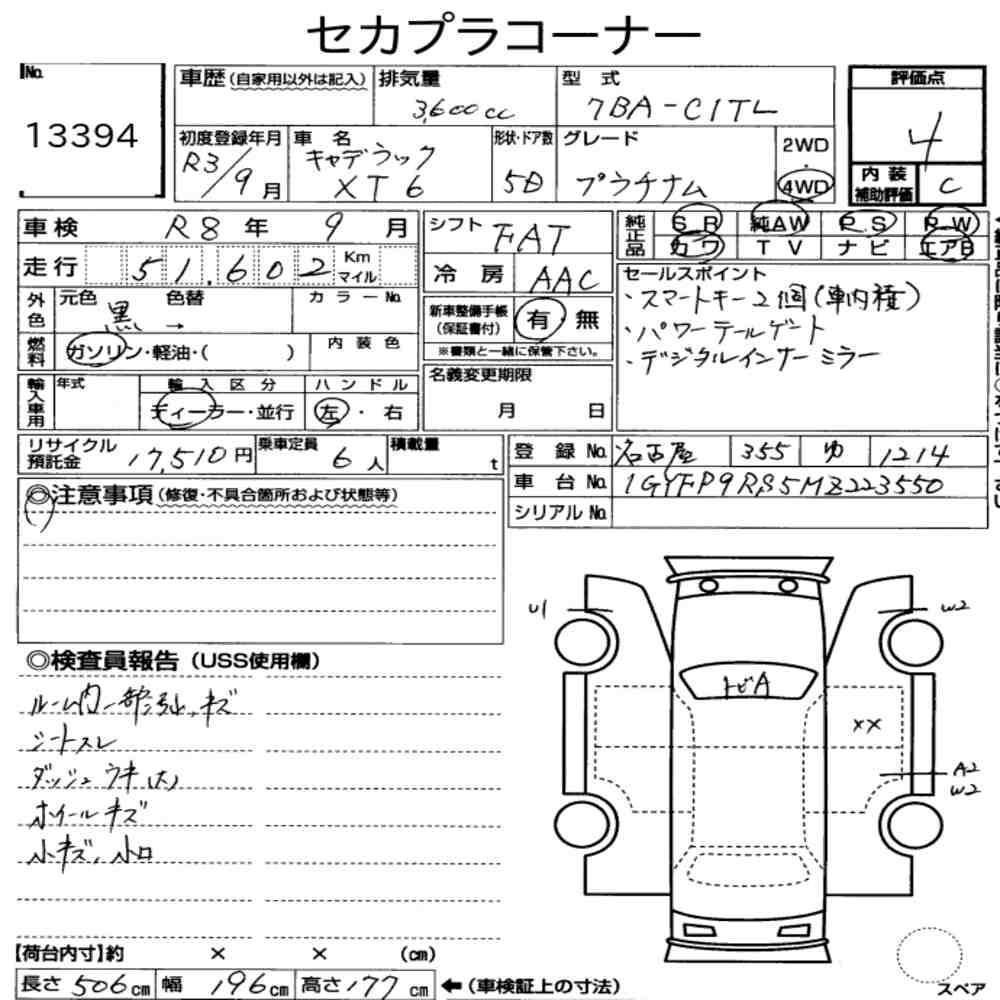 セカプラコーナー
No.
13394
車歴(自家用以外は記入)
排気量
3,600cc
型 式
7BA-C1TL
評価点
4
内装補助評価
C
初度登録年月
R3/9月
車 名
キャデラック
XT6
形状・ドア数
5D
グレード
プラチナム
2WD
・
4WD
車検 R8年 9月
走行 51,602 Km
マイル
外色
元色 黒 → 色替
カラーNo.
燃料
ガソリン・軽油・( )
内装色
輸入車用
年式
輸入区分
ディーラー・並行
ハンドル
左・右
シフト FAT
冷房 AAC
新車整備手帳
(保証書付)
有 無
※書類と一緒に保管下さい。
名義変更期限
月 日
純正品
SR 純AW PS PW
カワ TV ナビ エアB
セールスポイント
・スマートキー2個(車内積)
・パワーテールゲート
・デジタルインナーミラー
リサイクル
預託金 17,510円
乗車定員 6人
積載量 t
登録No. 名古屋 355 ゆ 1214
車台No. 1GYFP9RS5MZ223550
シリアルNo.
◎注意事項(修復・不具合箇所および状態等)
◎検査員報告(USS使用欄)
ルーム内一部シミ、キズ
シートスレ
ダッシュウキ(大)
ホイールキズ
小キズ、小凹
U1
W2
トビA
××
A2
W2
【荷台内寸】約 × × (cm)
長さ506cm 幅196cm 高さ177cm ←(車検証上の寸法)
スペア